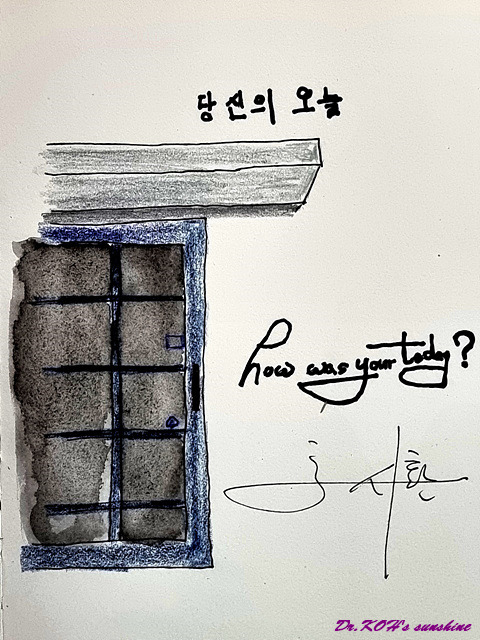 당신의 오늘
how was your today?
Dr.KOH's sunshine